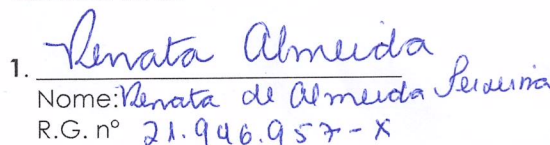 1. Renata Almeida
Nome: Renata de Almeida
R.G. nº 21.946.957-X